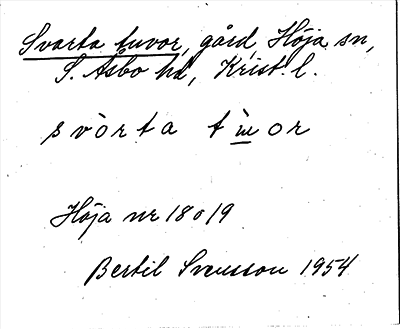 Svarta tuvor, gård, Höja sn,
S. Åsbo hd, Krist. l.
svòrta tùwor
Höja nr 18 o 19
Bertil Svensson 1954